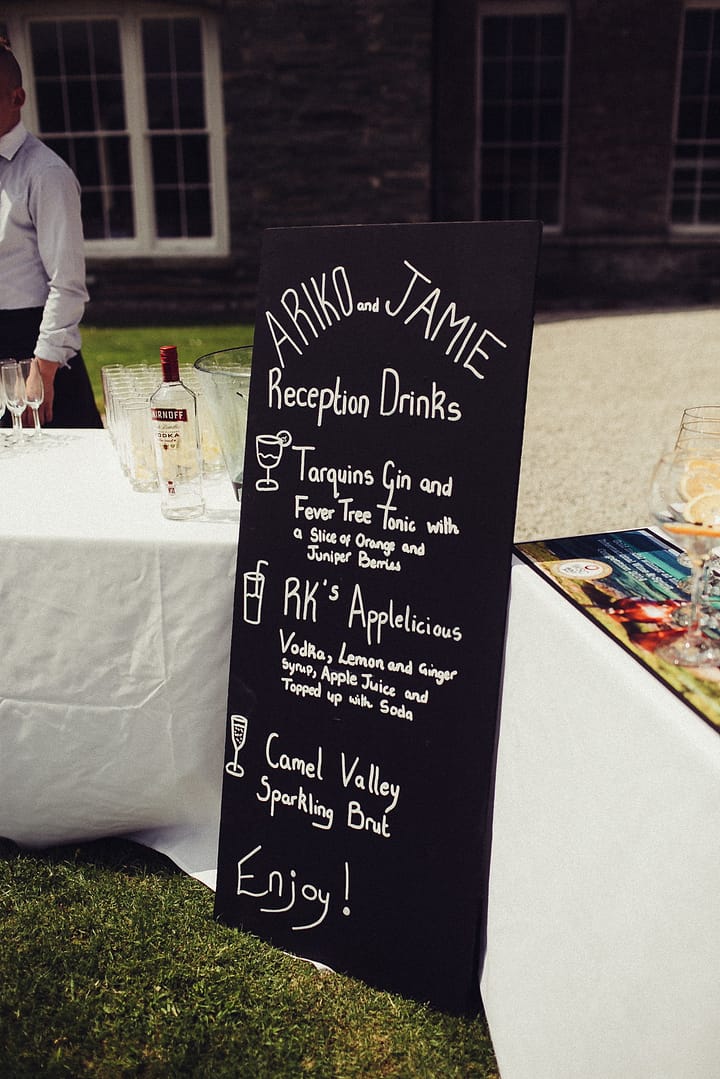 ARIKO and JAMIE
Reception Drinks
Tarquins Gin and
Fever Tree Tonic with
a Slice of Orange and
Juniper Berries
RK's Applelicious
Vodka, Lemon and Ginger
Syrup, Apple Juice and
Topped up with Soda
Camel Valley
Sparkling Brut
Enjoy!
SMIRNOFF
VODKA